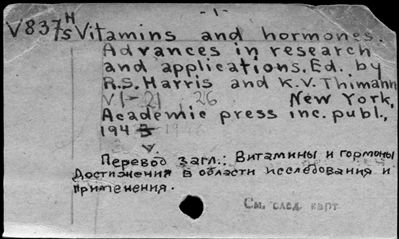 - 1 -
V837 H/S Vitamins and hormones.
Advances in research
and applications. Ed. by
R.S. Harris and K.V. Thimann
V 1-21, 26 New York,
Academic press inc. publ.,
1943
v.
Перевод загл.: Витамины и гормоны
Достижения в области исследования и
применения.
См. след. карт